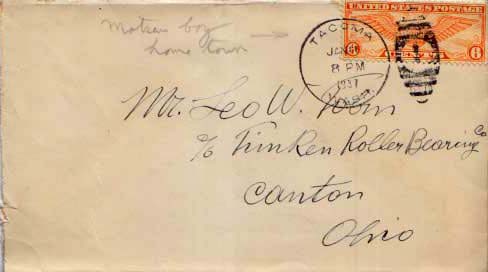 Matson boy
home town
TACOMA
JAN
8 PM
1937
WASH.
UNITED STATES POSTAGE
6 6
Mr. Leo W.
c/o Timken Roller Bearing Co
Canton
Ohio